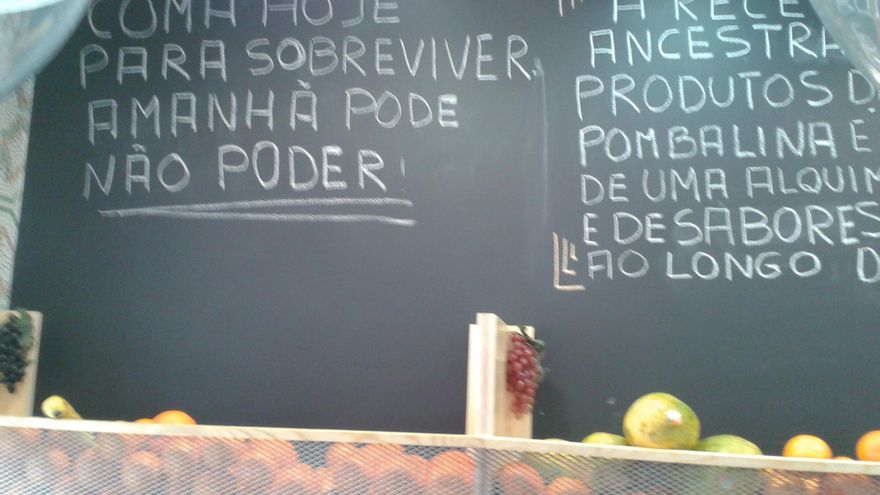 COMA HOJE
PARA SOBREVIVER,
AMANHÃ PODE
NÃO PODER!
A RECE
ANCESTRA
PRODUTOS D
POMBALINA É
DE UMA ALQUIM
E DE SABORES
AO LONGO D